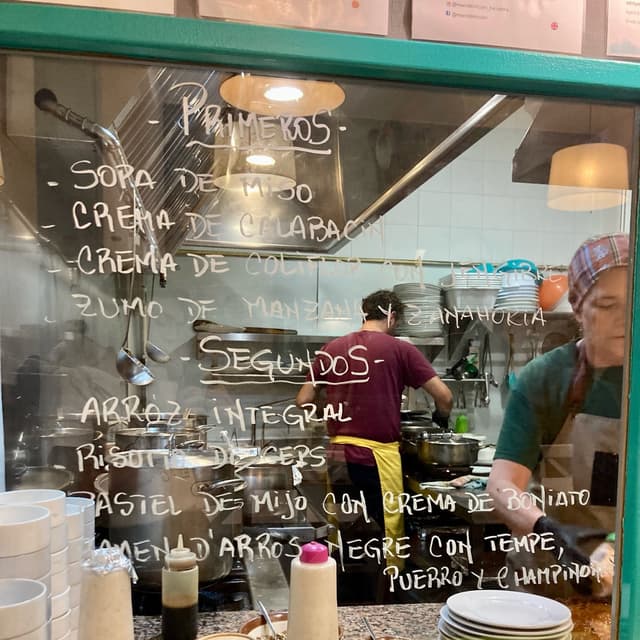 - PRIMEROS -
- SOPA DE MIJO
- CRÉMA DE CALABACIN
- CREMA DE COLIFLOR CON
- ZUMO DE MANZANA Y ZANAHORIA
- SEGUNDOS -
- ARRÓZ INTEGRAL
- RISOTTO DE CEPS
PASTEL DE MIJO CON CREMA DE BONIATO
D'ARROS NEGRE CON TEMPE,
PUERRO Y CHAMPIÑON